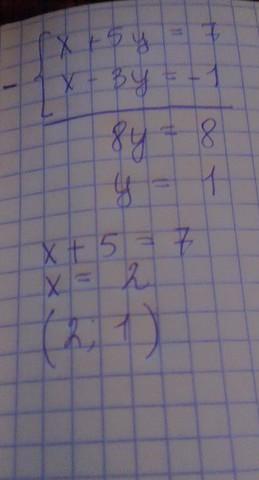 - { x + 5y = 7
x - 3y = -1
8y = 8
y = 1
x + 5 = 7
x = 2
(2; 1)